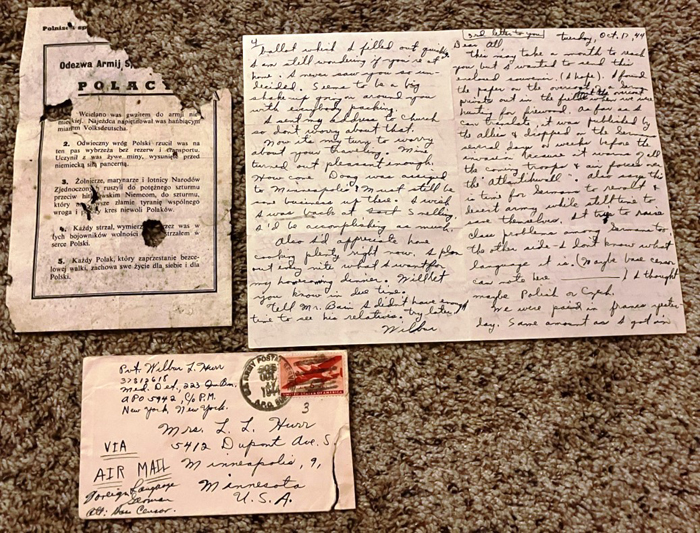 Odezwa Armij S
POLAC
1. Wcielano was gwałtem do armii nie-
mieckiej. Najeźdca napiętnował was hańbiącym
mianem Volksdeutscha.
2. Odwieczny wróg Polski rzucił was na
ten pas wybrzeża bez rezerw i transportu.
Uczynił z was żywe miny, wysunięte przed
niemiecką linją pancerną.
3. Żołnierze, marynarze i lotnicy Narodów
Zjednoczonych ruszyli do potężnego szturmu
przeciw Niemcom, do szturmu,
który złamie tyranię wspólnego
wroga i kres niewoli Polaków.
4. Każdy strzał, wymierzony przez was w
tych bojowników wolności strzałem w
serce Polski.
5. Każdy Polak, który zaprzestanie bezce-
lowej walki, zachowa swe życie dla siebie i dla
Polski.
4
ballot which I filled out
I am still wondering if you're at
home. I never saw you so un-
decided. Seems to be a big
shakeup all around you
with
I sent my address to church
so don't worry about that.
Now its my turn to worry
about your traveling. Mine
turned out pleasant enough.
How come Doug was assigned
to Minneapolis? Must still be
some business up there. I wish
I was back at Snelling.
I'd be accomplishing as much.
Also I'd appreciate home
cooking plenty right now. I plan
out every nite what I want for
my homecoming dinner. Will let
you know in due time.
Tell Mr. Bain I didn't have enough
time to see his relatives. Try later.
Wilbur
3rd letter to you
Tuesday, Oct. 17, 44
Dear All,
This may take a month to reach
you but I wanted to send this
enclosed souvenir. (I hope). I found
the paper on the
prints out in the field when we were
hunting for firewood. As far as I
can translate, it was published by
the allies & dropped on the Germans
several days or weeks before the
invasion because it warns of all
the coming troops & air forces on
the "atlantikwall" - also says this
is time for Germans to revolt &
desert army while still time to
save themselves. It try to raise
class problems among Germans too.
The other side - I don't know what
language it is. (Maybe base censor
can note here ______) I thought
maybe Polish or Czech.
We were paid in francs yester-
day. Same amount as I got in
Pvt. Wilbur L. Hurr
37312618
Med. Det., 223
APO 5942, c/o P.M.
New York, New York.
U.S. ARMY POSTAL
OCT
17
1944
A.P.O.
3
Mrs. L. L. Hurr
5412 Dupont Ave. S.
Minneapolis, 9,
Minnesota
U.S.A.
VIA
AIR MAIL
Foreign Language
German
Att: Base Censor.